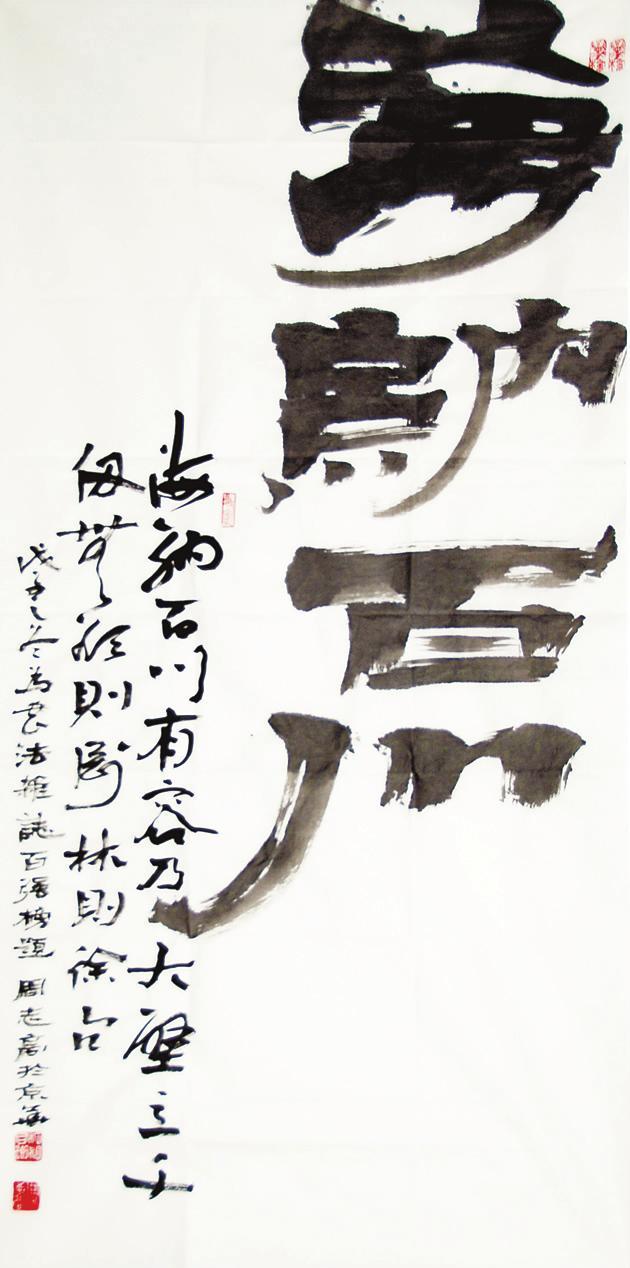 海納百川
海納百川有容乃大壁立千
仞無欲則剛林則徐句
戊子之冬為書法雜誌百强榜題 周志高於京華